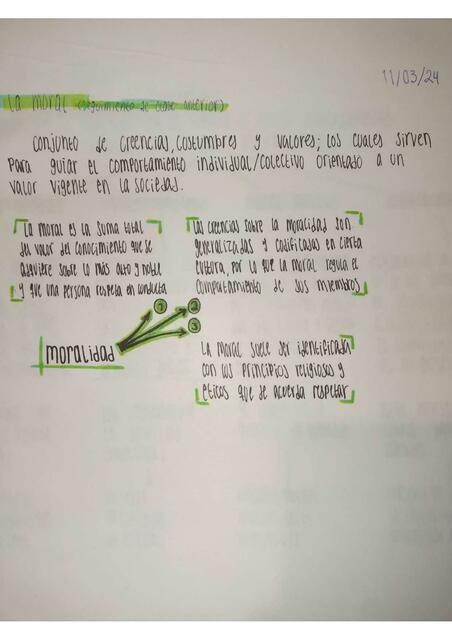 11/03/24
La moral (seguimiento de clase anterior)
Conjunto de creencias, costumbres y valores; los cuales sirven
para guiar el comportamiento individual/colectivo orientado a un
valor vigente en la sociedad.
La moral es la suma total
del valor del conocimiento que se
adquiere sobre lo más alto y noble
y que una persona respeta en conducta
Las creencias sobre la moralidad son
generalizadas y codificadas en cierta
cultura, por lo que la moral regula el
comportamiento de sus miembros
1
2
3
moralidad
La moral suele ser identificada
con los principios religiosos y
éticos que se acuerda respetar